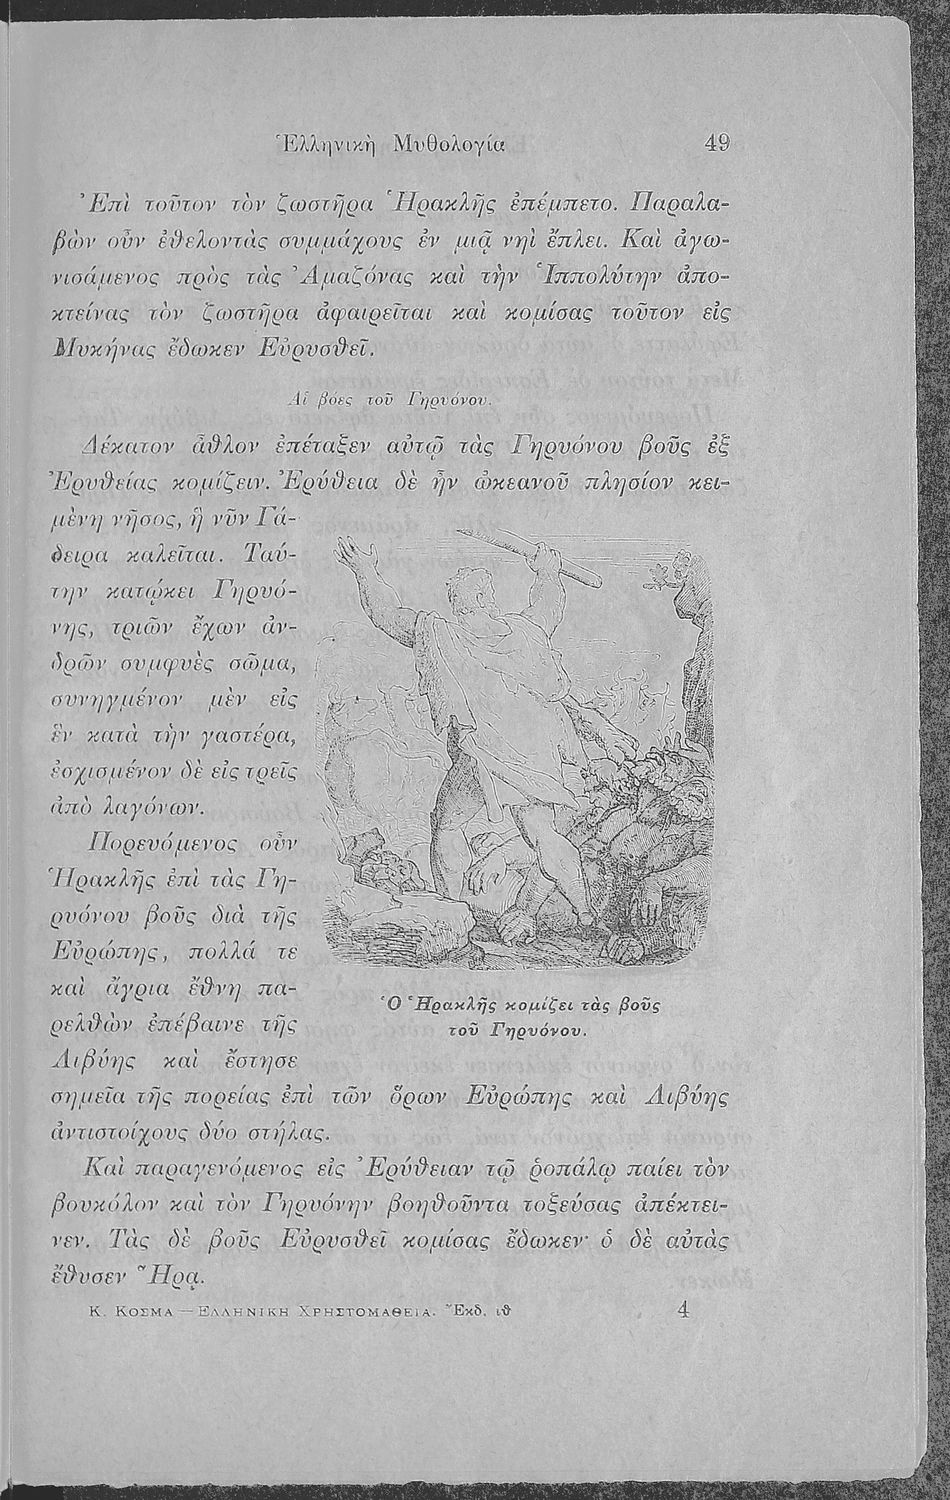 Ἑλληνικὴ Μυθολογία 49
Ἐπὶ τοῦτον τὸν ζωστῆρα Ἡρακλῆς ἐπέμπετο. Παραλα-
βὼν οὖν ἐθελοντὰς συμμάχους ἐν μιᾷ νηὶ ἔπλει. Καὶ ἀγω-
νισάμενος πρὸς τὰς Ἀμαζόνας καὶ τὴν Ἱππολύτην ἀπο-
κτείνας τὸν ζωστῆρα ἀφαιρεῖται καὶ κομίσας τοῦτον εἰς
Μυκήνας ἔδωκεν Εὐρυσθεῖ.
Αἱ βόες τοῦ Γηρυόνου.
Δέκατον ἆθλον ἐπέταξεν αὐτῷ τὰς Γηρυόνου βοῦς ἐξ
Ἐρυθείας κομίζειν. Ἐρύθεια δὲ ἦν ὠκεανοῦ πλησίον κει-
μὲνη νῆσος, ἣ νῦν Γά-
δειρα καλεῖται. Ταύ-
την κατῴκει Γηρυό-
νης, τριῶν ἔχων ἀν-
δρῶν συμφυὲς σῶμα,
συνηγμένον μὲν εἰς
ἓν κατὰ τὴν γαστέρα,
ἐσχισμένον δὲ εἰς τρεῖς
ἀπὸ λαγόνων.
Πορευόμενος οὖν
Ἡρακλῆς ἐπὶ τὰς Γη-
ρυόνου βοῦς διὰ τῆς
Εὐρώπης, πολλά τε
καὶ ἄγρια ἔθνη πα-
ρελθὼν ἐπέβαινε τῆς
Λιβύης καὶ ἔστησε
σημεῖα τῆς πορείας ἐπὶ τῶν ὅρων Εὐρώπης καὶ Λιβύης
ἀντιστοίχους δύο στήλας.
Ὁ Ἡρακλῆς κομίζει τὰς βοῦς
τοῦ Γηρυόνου.
Καὶ παραγενόμενος εἰς Ἐρύθειαν τῷ ῥοπάλῳ παίει τὸν
βουκόλον καὶ τὸν Γηρυόνην βοηθοῦντα τοξεύσας ἀπέκτει-
νεν. Τὰς δὲ βοῦς Εὐρυσθεῖ κομίσας ἔδωκεν· ὁ δὲ αὐτὰς
ἔθυσεν Ἥρᾳ.
Κ. ΚΟΣΜΑ — ΕΛΛΗΝΙΚΗ ΧΡΗΣΤΟΜΑΘΕΙΑ. Ἔκδ. ιθ 4